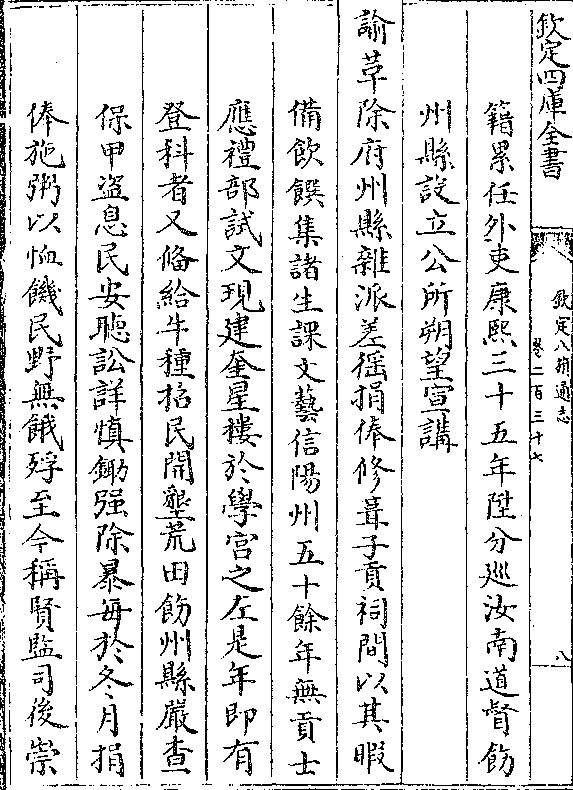 欽定四庫全書
欽定八旗通志
卷二百三十七
八
籍累任外吏康熙三十五年陞分巡汝南道督飭
州縣設立公所朔望宣講
諭革除府州縣雜派差徭捐俸修葺子貢祠間以其暇
備飲饌集諸生課文藝信陽州五十餘年無貢士
應禮部試文現建奎星樓於學宮之左是年即有
登科者又偹給牛種招民開墾荒田飭州縣嚴查
保甲盜息民安聽訟詳慎鋤强除暴每於冬月捐
俸施粥以恤饑民野無餓殍至今稱賢監司後崇